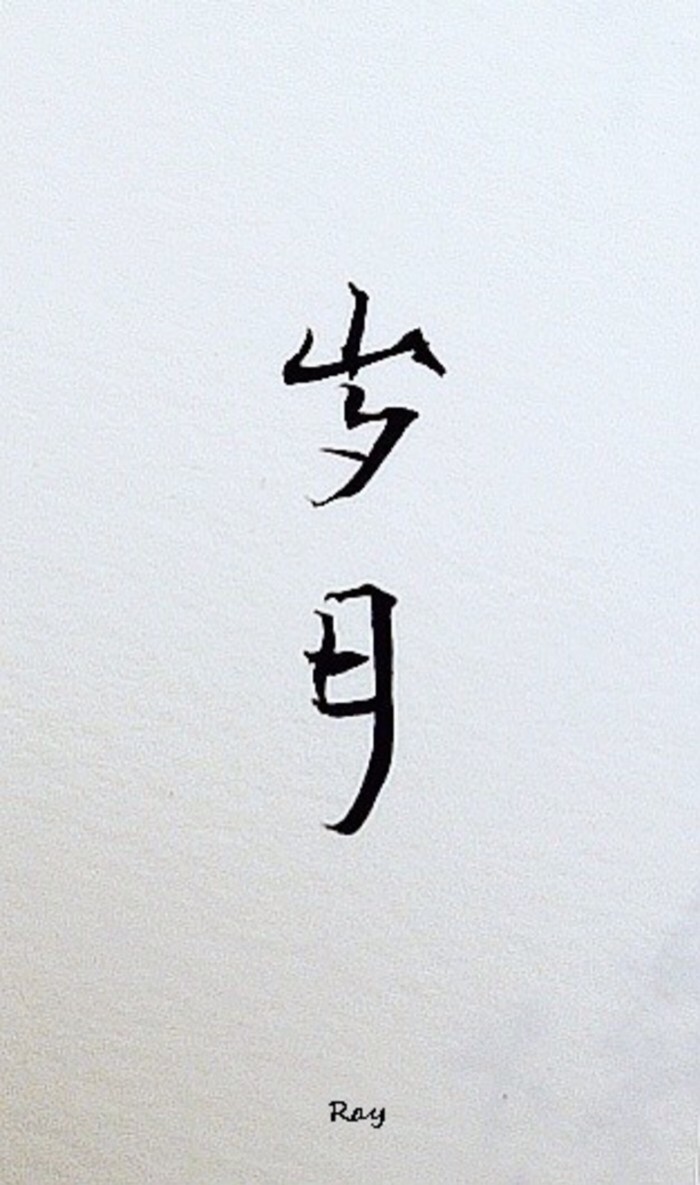 岁月
Ray